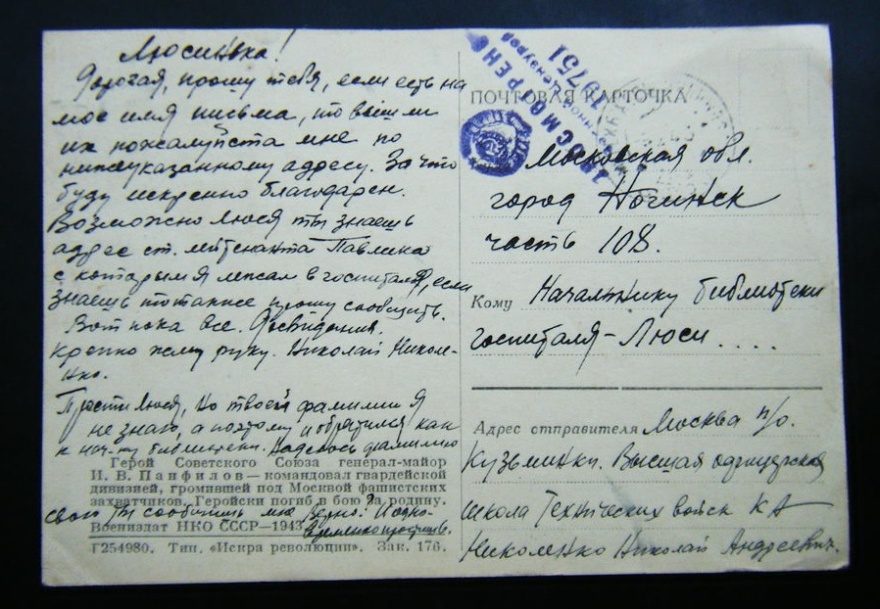 Люсинька!
Дорогая, прошу тебя, если есть на
мое имя письма, то вышли
их пожалуйста мне по
нижеуказанному адресу. За что
буду искренно благодарен.
Возможно Люся ты знаешь
адрес ст. лейтенанта Павлика
с которым я лежал в госпитале, если
знаешь то также прошу сообщить.
Вот пока все. Досвидания.
Крепко жму руку. Николай Николе-
нко.
Прости Люся, но твоей фамилии я
не знаю, а поэтому и обратился как
к нач-ку библиотеки. Надеюсь фамилию
Герой Советского Союза генерал-майор
И. В. Панфилов — командовал гвардейской
дивизией, громившей под Москвой фашистских
захватчиков. Геройски погиб в бою за родину.
свою ты сообщишь мне
Воениздат НКО СССР—1943
Г254980. Тип. «Искра революции». Зак. 176.
ПРОСМОТРЕНО
Военной Цензурой
19751
ПОЧТОВАЯ КАРТОЧКА
Московская обл.
город Ногинск
часть 108.
Кому Начальнику библиотеки
госпиталя - Люси . . . .
Адрес отправителя Москва п/о.
Кузьминки. Высшая офицерская
школа Технических войск КА
Николенко Николай Андреевич.